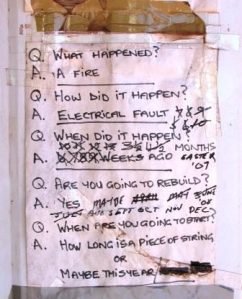 Q. WHAT HAPPENED?
A. A FIRE
Q. HOW DID IT HAPPEN?
A. ELECTRICAL FAULT
Q. WHEN DID IT HAPPEN?
MONTHS
A. WEEKS AGO EASTER '07
Q. ARE YOU GOING TO REBUILD?
A. YES MAYBE MAY JUNE '08
JULY AUG SEPT OCT NOV DEC?
Q. WHEN ARE YOU GOING TO START?
A. HOW LONG IS A PIECE OF STRING
OR
MAYBE THIS YEAR